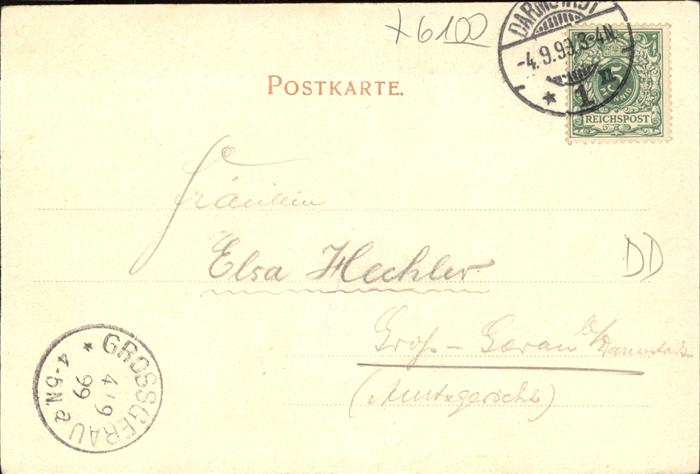 +6100
DARMSTADT
-4.9.99.3-4N.
* 1 II
5
REICHSPOST
POSTKARTE.
Fräulein
Elsa Hechler.
DD
Groß-Gerau b/Darmstadt
(Amtsgericht)
* GROSSGERAU
4 9
99
4-5N. a